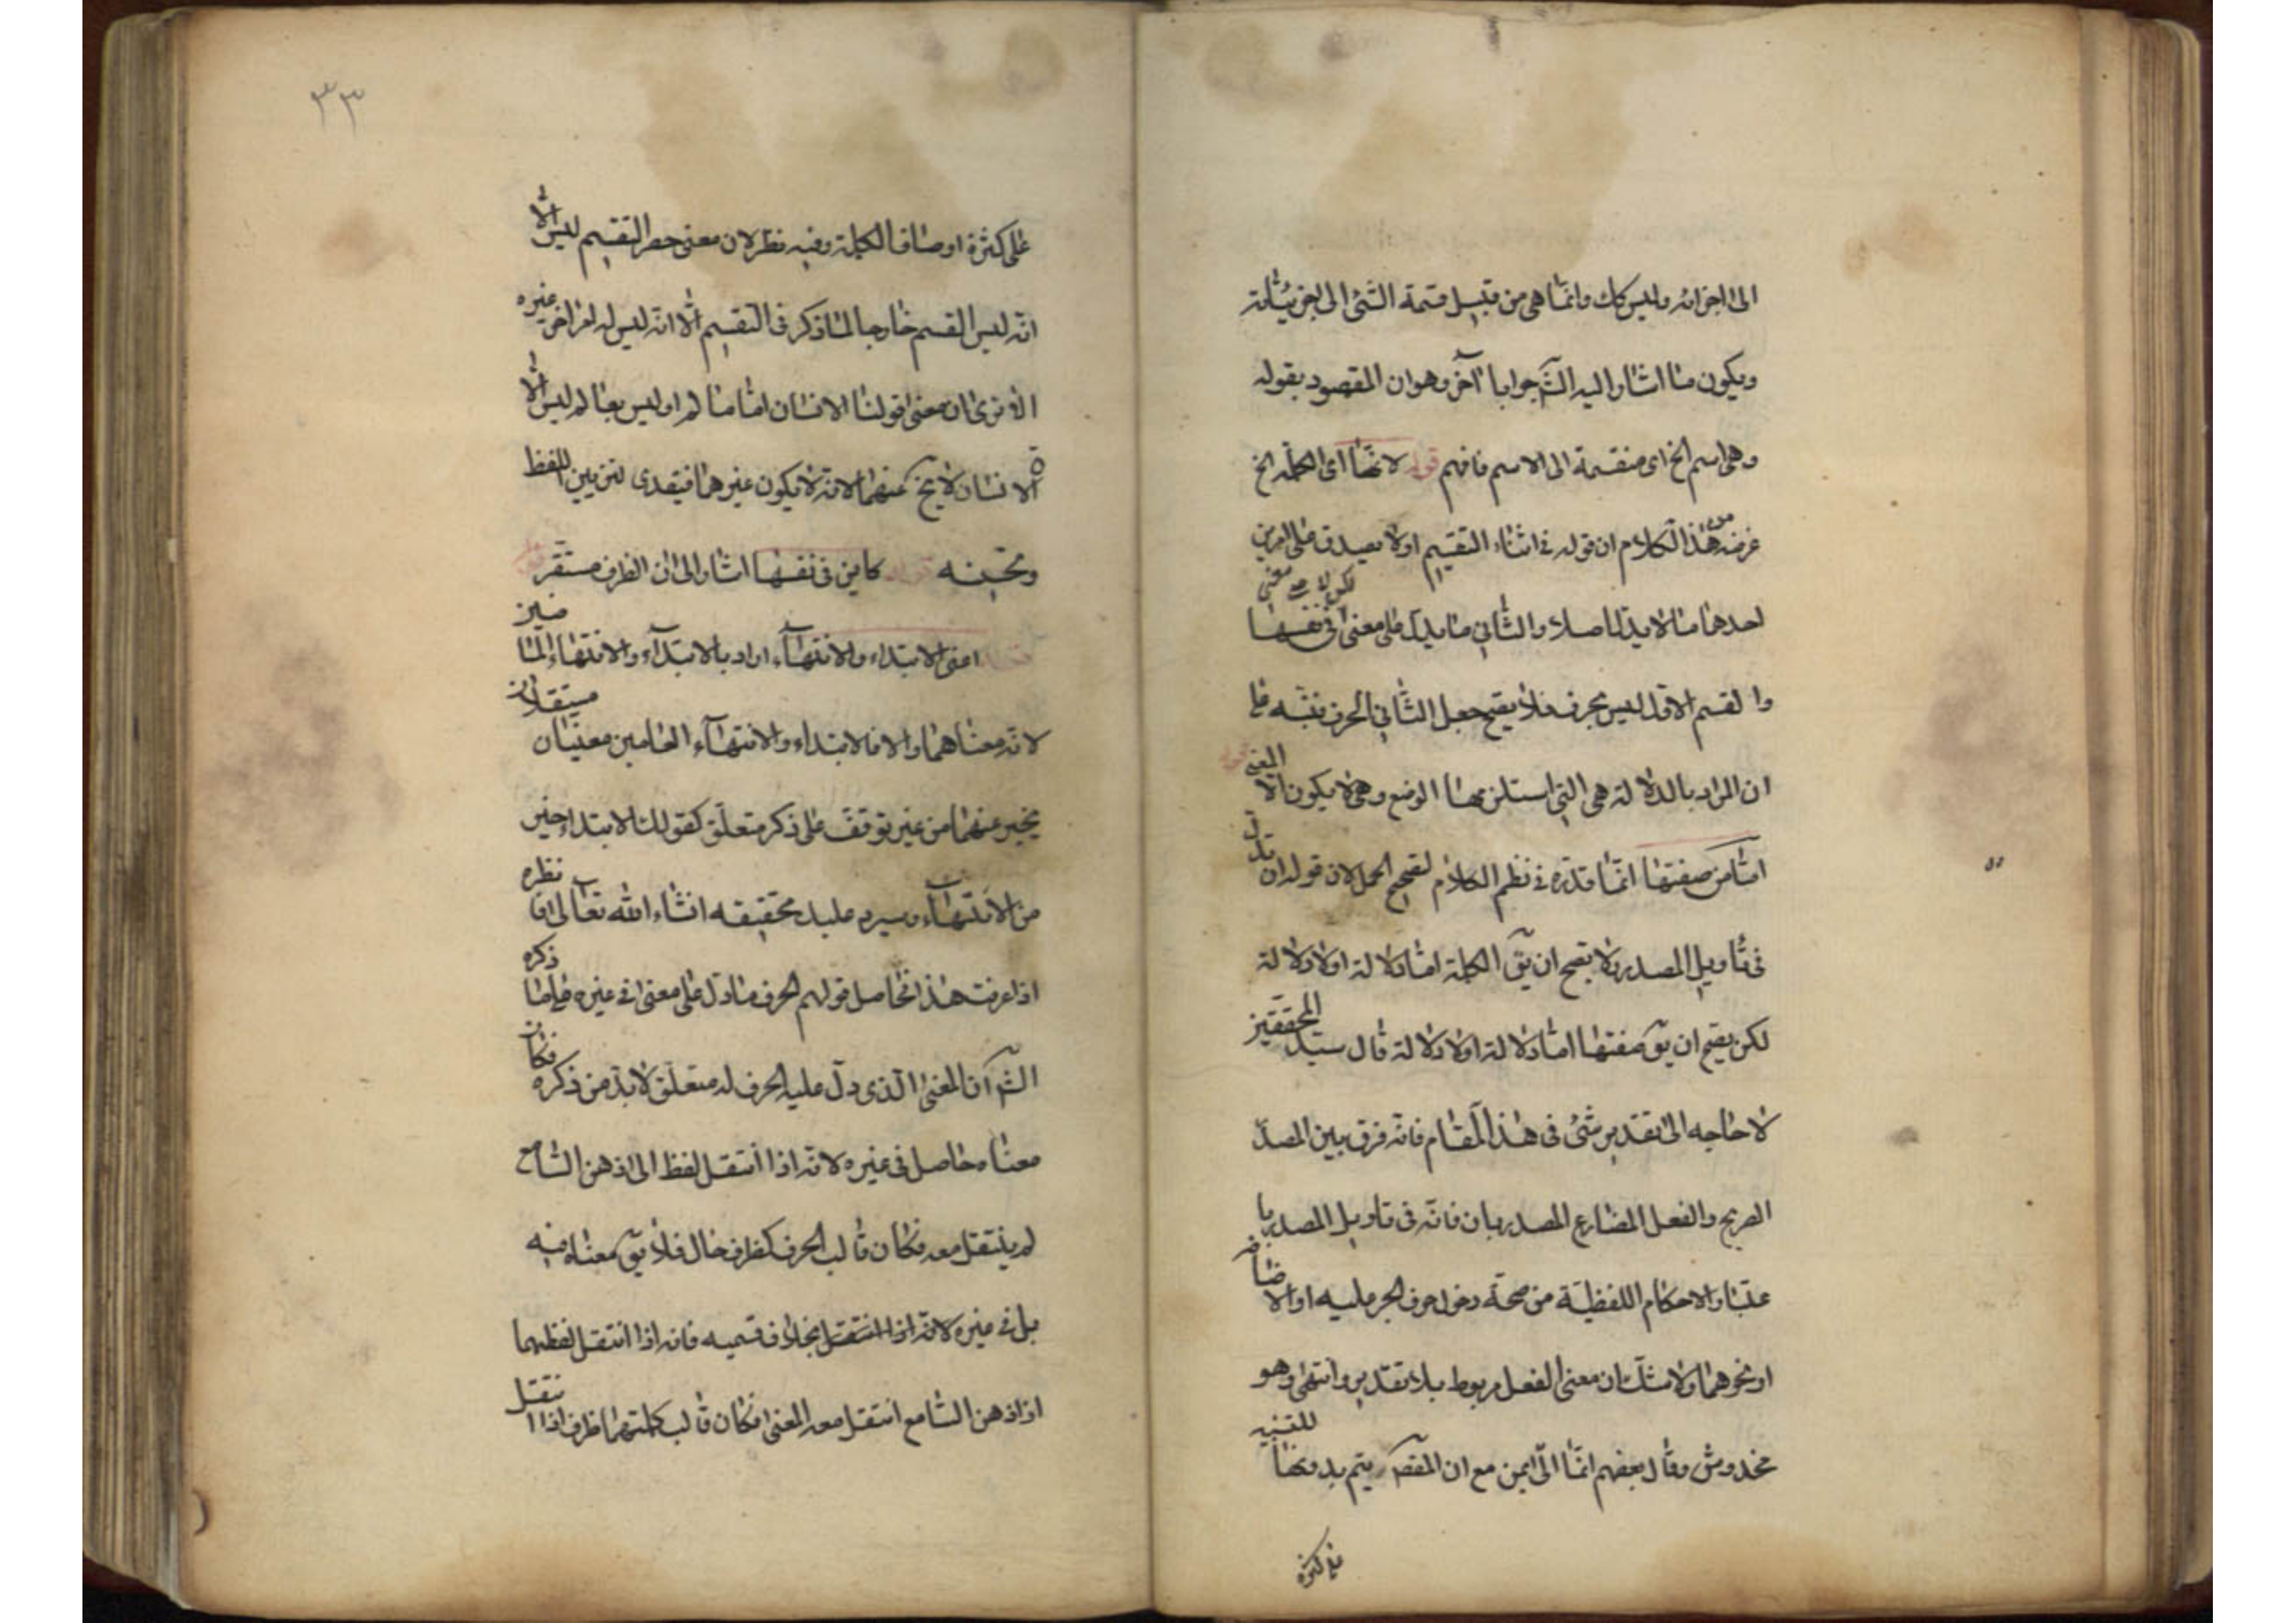 الى اجزائه وليس كك وانما هى من قبيل قسمة الشئ الى جزئياته
ويكون ما اشار اليه الش جوابا آخر وهو ان المقصود بقوله
وهى اسم الخ اى منقسمة الى الاسم فافهم قوله لانها اى الكلمة الخ
غرضه من هذا الكلام ان قوله فى اثناء التقسيم اولا يصدق على امرين
احدهما ما لا يدل اصلا والثانى ما يدل على معنى لكن لا على معنى فى نفسها
والقسم الاول ليس بحرف فلا يصح جعل الثانى الحرف نبّه على
ان المراد بالدلالة هى التى استلزمها الوضع وهى لا يكون الا المعنى قوله
اما من صفتها انما قدره فى نظم الكلام لتصحيح الحمل لان قوله ان تدل
فى تأويل المصدر ولا يصح ان يق الكلمة اما دلالة او لا دلالة
لكن يصح ان يق صفتها اما دلالة او لا دلالة قال سيد المحققين
لا حاجه الى تقدير شئ فى هذا المقام فانه فرق بين المصدر
الصريح والفعل المضارع المصدر بان فانه فى تاويل المصدر با
عتبار الاحكام اللفظية من صحة دخول حرف الجر عليه او الاضافة
او نحوهما ولا شك ان معنى الفعل مربوط بلا تقدير وانتهى وهو
مخدوش وقال بعضهم انما مع ان المقصـ يتم بدونها للتنبيه
على كثرة
٣٣
على كثرة اوصاف الكلمة وفيه نظر لان معنى حصر التقسيم ليس الا
انه ليس القسم خارجا لما ذكر فى التقسيم الا انه ليس له امر اخر غيره
الا ترى ان معنى قولنا الانسان اما عالم او ليس بعالم ليس الا
ان الانسان لا يخ عنهما لانه لا يكون غيرهما فيقدى لتزيين اللفظ
وتحسينه قوله كاين فى نفسها اشار الى ان الظرف مستقر
قوله اعنى الابتداء والانتهاء اراد بالابتداء والانتهاء الخاصين
لانه معناهما والا فالابتداء والانتهاء العامين معنيان مستقلان
يخبر عنهما من غير توقف على ذكر متعلق كقولك الابتداء خير
من الانتهاء وسيرد عليك تحقيقه انشاء الله تعالى فانتظره
اذا عرفت هذا فحاصل قولهم الحرف ما دل على معنى فى غيره على ما ذكره
الش ان المعنى الذى دل عليه الحرف له متعلق لا بد من ذكره فكان
معناه حاصل فى غيره لانه اذا انتقل لفظ الى ذهن السامع
لم ينتقل معه فكان قالب الحرف كظرف خال فلا يق معناه فيه
بل فى غيره لانه اذا انتقل بخلاف قسميه فانه اذا انتقل لفظهما
اذا ذهن السامع انتقل معه المعنى فكان قالب كلمتهما ظرف اذا انتقل